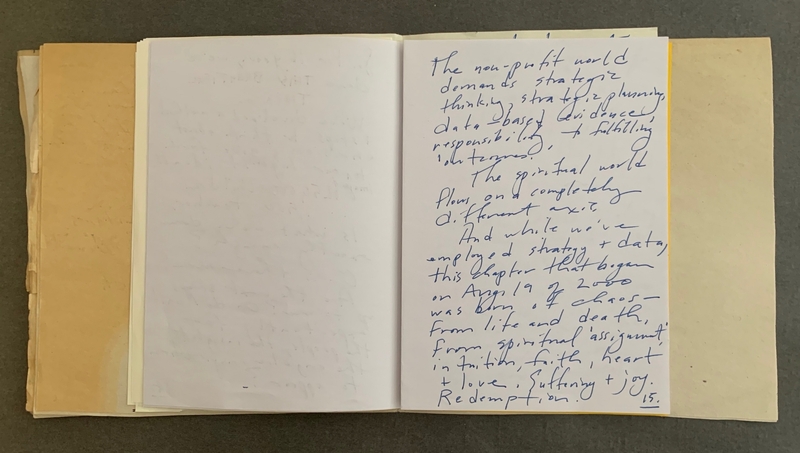 The non-profit world
demands strategic
thinking, strategic planning,
data-based evidence,
responsibility to fulfilling
'outcomes'.
The spiritual world
flows on a completely
different axis.
And while we've
employed strategy + data,
this chapter that began
on Aug. 19 of 2000
was born of chaos—
from life and death,
from spiritual 'assignment',
intuition, faith, heart
+ love. Suffering + joy.
Redemption.
15.